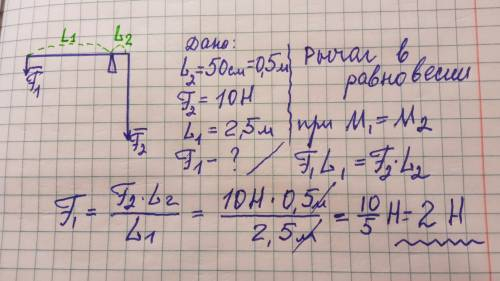 L₁ L₂
F̅₁
F̅₂
Дано:
L₂ = 50см = 0,5м
F₂ = 10Н
L₁ = 2,5м
F₁ - ?
Рычаг в
равновесии
при M₁ = M₂
F₁L₁ = F₂·L₂
F₁ = F₂·L₂ / L₁ = 10Н·0,5м / 2,5м = 10/5 Н = 2 Н